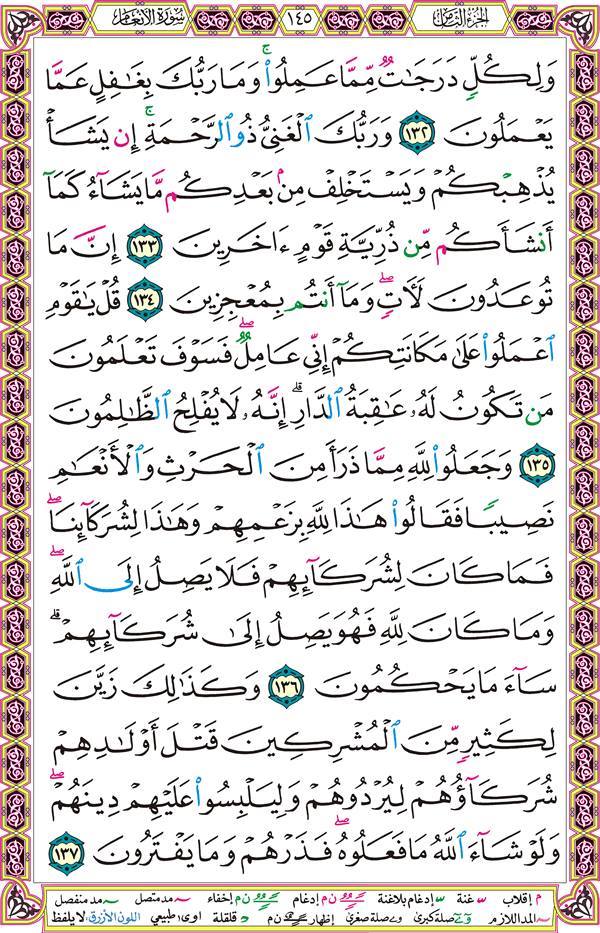 الجزء الثامن ١٤٥ سورة الأنعام
وَلِكُلٍّ دَرَجَٰتٌ مِّمَّا عَمِلُوا۟ ۚ وَمَا رَبُّكَ بِغَٰفِلٍ عَمَّا
يَعْمَلُونَ ١٣٢ وَرَبُّكَ ٱلْغَنِىُّ ذُو ٱلرَّحْمَةِ ۚ إِن يَشَأْ
يُذْهِبْكُمْ وَيَسْتَخْلِفْ مِنۢ بَعْدِكُم مَّا يَشَآءُ كَمَآ
أَنشَأَكُم مِّن ذُرِّيَّةِ قَوْمٍ ءَاخَرِينَ ١٣٣ إِنَّ مَا
تُوعَدُونَ لَءَاتٍ ۖ وَمَآ أَنتُم بِمُعْجِزِينَ ١٣٤ قُلْ يَٰقَوْمِ
ٱعْمَلُوا۟ عَلَىٰ مَكَانَتِكُمْ إِنِّى عَامِلٌ ۖ فَسَوْفَ تَعْلَمُونَ
مَن تَكُونُ لَهُۥ عَٰقِبَةُ ٱلدَّارِ ۗ إِنَّهُۥ لَا يُفْلِحُ ٱلظَّٰلِمُونَ
١٣٥ وَجَعَلُوا۟ لِلَّهِ مِمَّا ذَرَأَ مِنَ ٱلْحَرْثِ وَٱلْأَنْعَٰمِ
نَصِيبًا فَقَالُوا۟ هَٰذَا لِلَّهِ بِزَعْمِهِمْ وَهَٰذَا لِشُرَكَآئِنَا ۖ
فَمَا كَانَ لِشُرَكَآئِهِمْ فَلَا يَصِلُ إِلَى ٱللَّهِ ۖ
وَمَا كَانَ لِلَّهِ فَهُوَ يَصِلُ إِلَىٰ شُرَكَآئِهِمْ ۗ
سَآءَ مَا يَحْكُمُونَ ١٣٦ وَكَذَٰلِكَ زَيَّنَ
لِكَثِيرٍ مِّنَ ٱلْمُشْرِكِينَ قَتْلَ أَوْلَٰدِهِمْ
شُرَكَآؤُهُمْ لِيُرْدُوهُمْ وَلِيَلْبِسُوا۟ عَلَيْهِمْ دِينَهُمْ ۖ
وَلَوْ شَآءَ ٱللَّهُ مَا فَعَلُوهُ ۖ فَذَرْهُمْ وَمَا يَفْتَرُونَ ١٣٧
م إقلاب غنة إدغام بلاغنة ن م إدغام ن م إخفاء مد متصل مد منفصل
المد اللازم صلة كبرى صلة صغرى إظهار ن م قلقلة اوى طبيعي اللون الأزرق: لا يلفظ